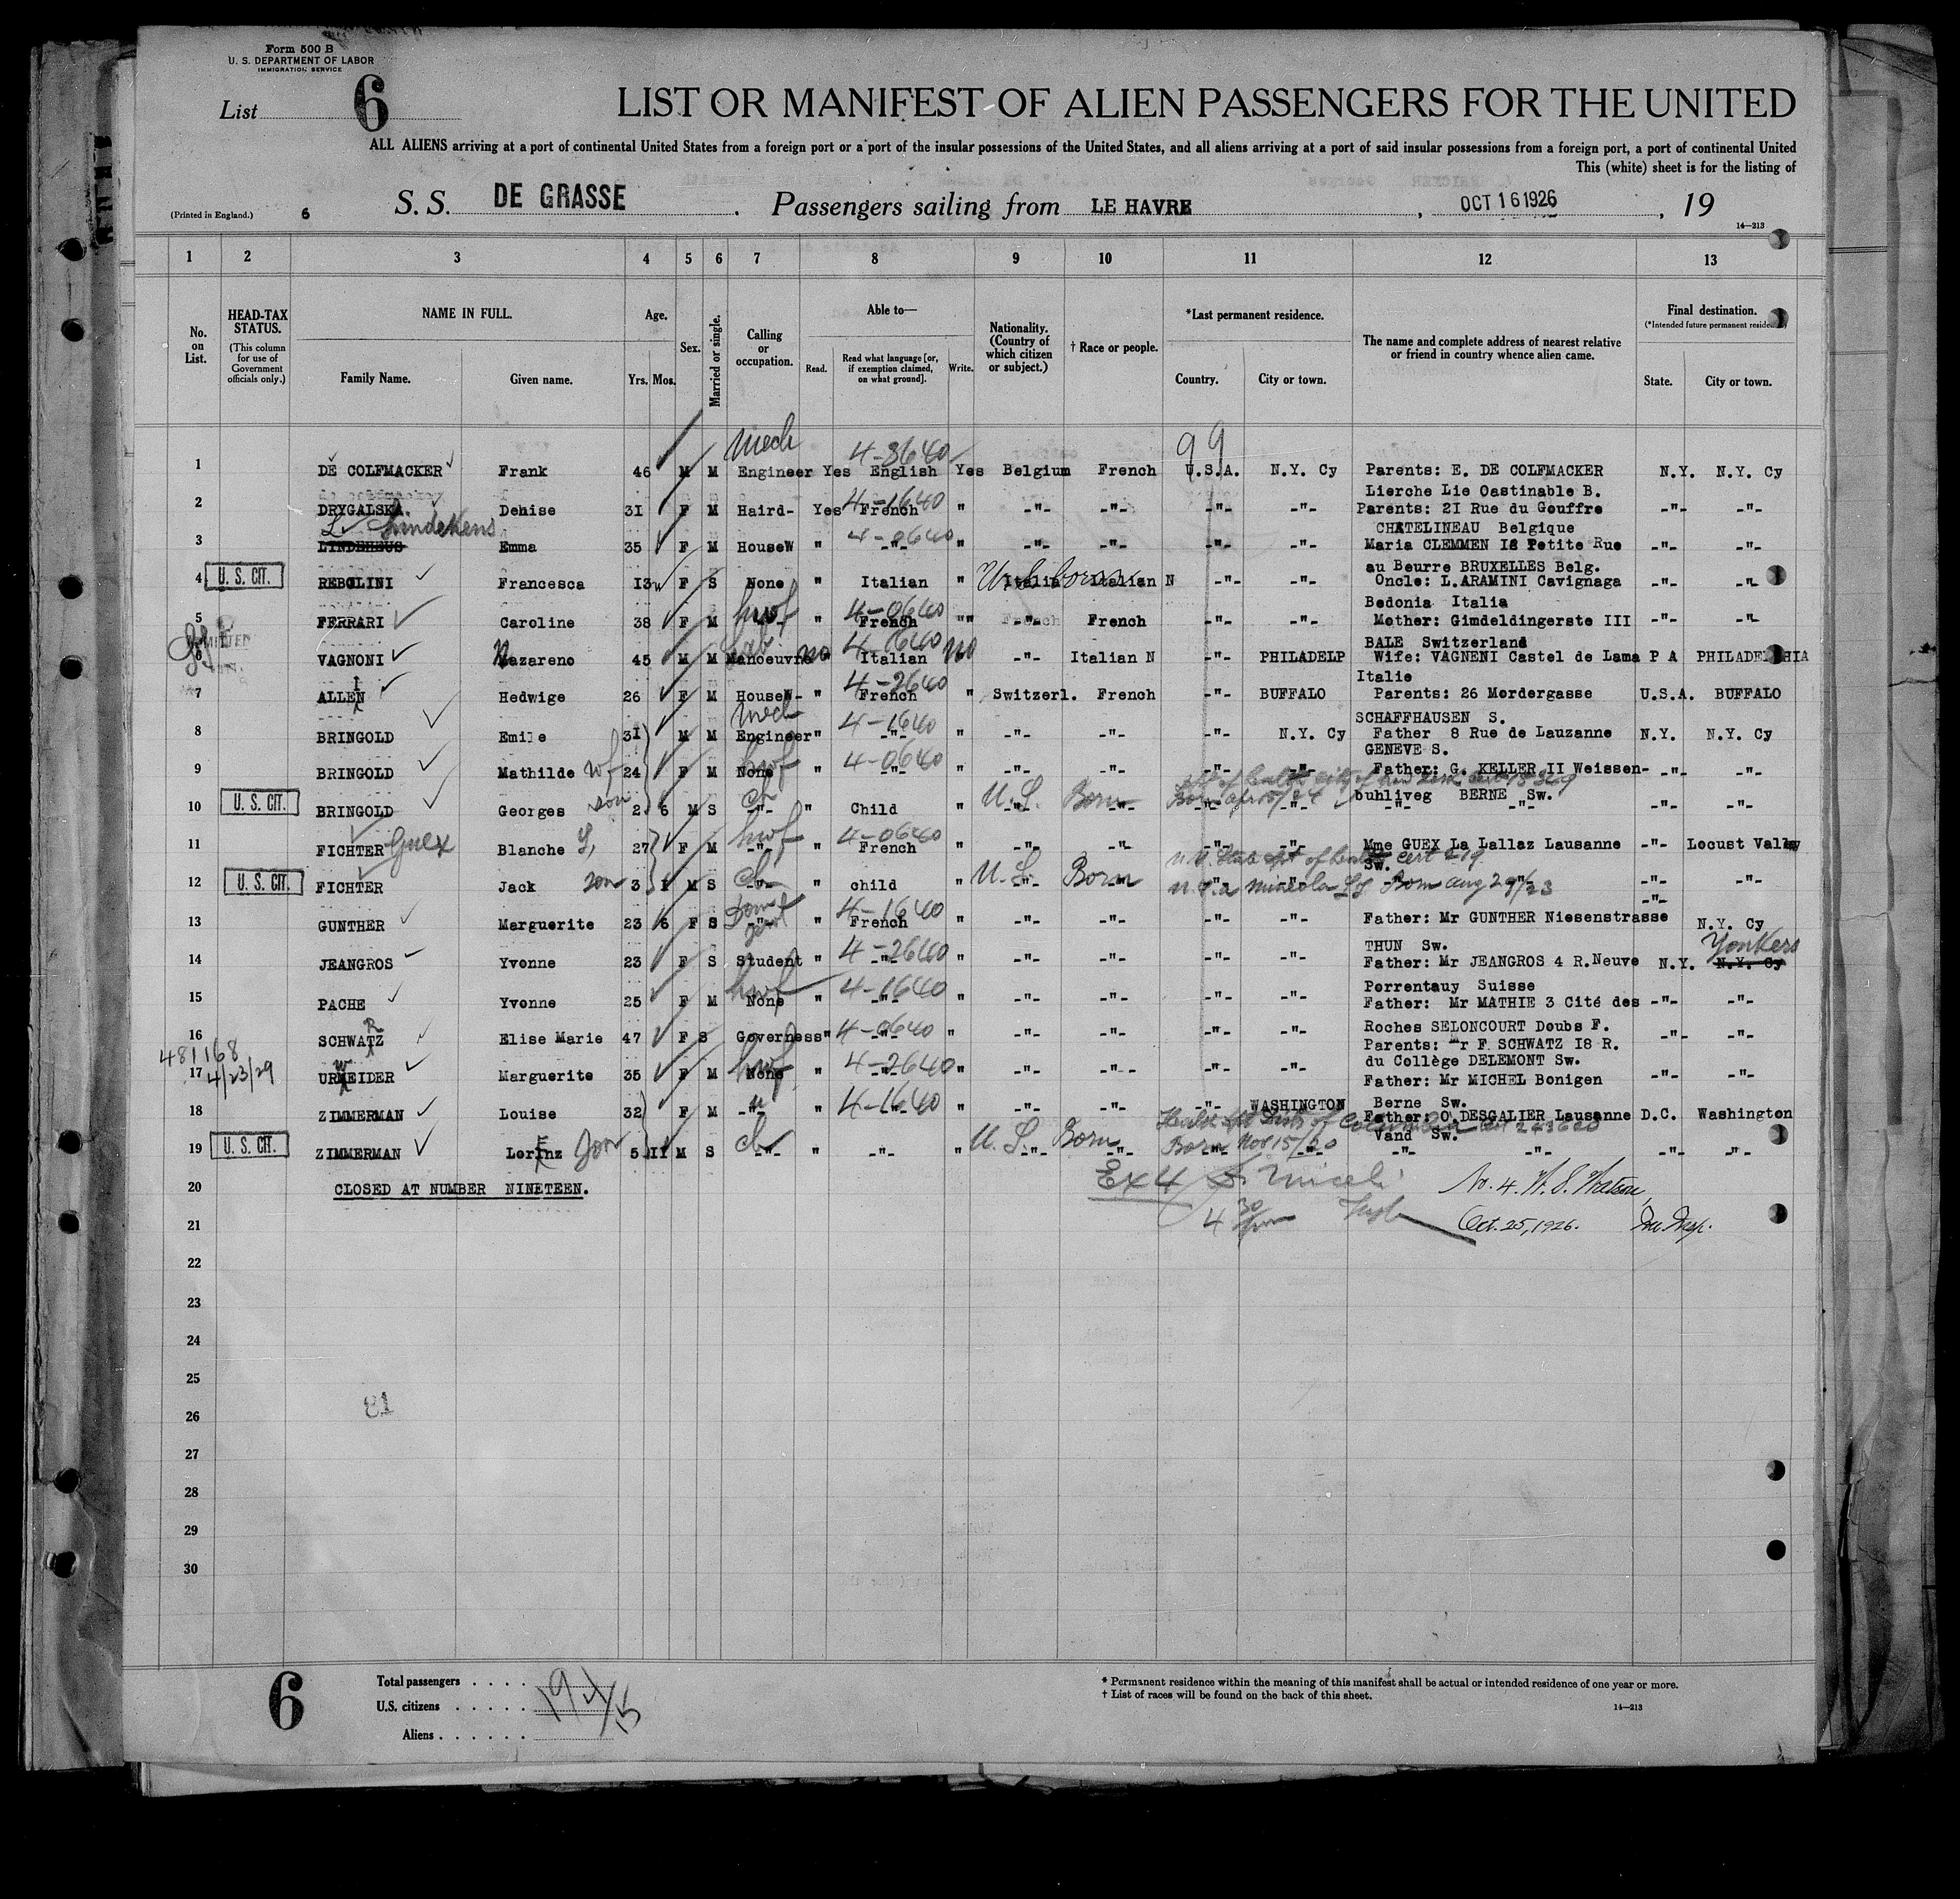 Form 500 B
U. S. DEPARTMENT OF LABOR
IMMIGRATION SERVICE
List 6
LIST OR MANIFEST OF ALIEN PASSENGERS FOR THE UNITED
ALL ALIENS arriving at a port of continental United States from a foreign port or a port of the insular possessions of the United States, and all aliens arriving at a port of said insular possessions from a foreign port, a port of continental United
This (white) sheet is for the listing of
(Printed in England.) 6 S. S. DE GRASSE . Passengers sailing from LE HAVRE , OCT 16 1926 , 19
14—213
1 2 3 4 5 6 7 8 9 10 11 12 13
No. on List.
HEAD-TAX STATUS.
(This column for use of Government officials only.)
NAME IN FULL.
Family Name. Given name.
Age.
Yrs. Mos.
Sex.
Married or single.
Calling or occupation.
Able to—
Read. Read what language [or, if exemption claimed, on what ground]. Write.
Nationality. (Country of which citizen or subject.)
† Race or people.
*Last permanent residence.
Country. City or town.
The name and complete address of nearest relative or friend in country whence alien came.
Final destination.
(*Intended future permanent residence)
State. City or town.
Mech 4-3640 99
1 DE COLFMACKER Frank 46 M M Engineer Yes English Yes Belgium French U.S.A. N.Y. Cy Parents: E. DE COLFMACKER N.Y. N.Y. Cy
Lierche Lie Oastinable B.
4-1640
2 DRYGALSKA. Dehise 31 F M Haird- Yes French " -"- -"- -"- -"- Parents: 21 Rue du Gouffre -"- -"-
CHATELINEAU Belgique
Lindekens 4-0640
3 LINDEHEUS Emma 35 F M HouseW " -"- " -"- -"- -"- -"- Maria CLEMMEN 18 Petite Rue -"- -"-
au Beurre BRUXELLES Belg.
4 U. S. CIT. REBOLINI Francesca 13 F S None " Italian " Italia U.S. born Italian N -"- -"- Oncle: L.ARAMINI Cavignaga -"- -"-
Bedonia Italia
hwf 4-0640
5 FERRARI Caroline 38 F M -"- " French "" -"- French -"- -"- Mother: Gimdeldingerste III -"- -"-
BALE Switzerland
4-1640
6 VAGNONI Nazareno 45 M M Manoeuvre no Italian no -"- Italian N -"- PHILADELP Wife: VAGNENI Castel de Lama P A PHILADELPHIA
Italie
4-2640
7 ALLEN Hedwige 26 F M HouseW- " French " Switzerl. French -"- BUFFALO Parents: 26 Mordergasse U.S.A. BUFFALO
SCHAFFHAUSEN S.
mech 4-1640
8 BRINGOLD Emile 31 M M Engineer " -"- " -"- -"- -"- N.Y. Cy Father 8 Rue de Lauzanne N.Y. N.Y. Cy
GENEVE S.
hwf 4-0640
9 BRINGOLD Mathilde wf 24 F M None " -"- " -"- -"- -"- -"- Father: G. KELLER II Weissen- -"- -"-
buhliveg BERNE Sw.
10 U. S. CIT. BRINGOLD Georges son 2 6 M S ch -"- " Child " U.S. Born -"- -"- -"- -"- -"- -"-
hwf 4-0640
11 FICHTER Guex Blanche 27 F M -"- " French " -"- -"- -"- -"- Mme GUEX La Lallaz Lausanne -"- Locust Vally
Sw.
12 U. S. CIT. FICHTER Jack son 3 1 M S ch -"- " child " U.S. Born N.Y.a Mineola LI Born Aug 29/23 -"- -"-
-"-
4-1640
13 GUNTHER Marguerite 23 6 F S -"- " French " -"- -"- -"- -"- Father: Mr GUNTHER Niesenstrasse N.Y. Cy
THUN Sw.
4-2640 Yonkers
14 JEANGROS Yvonne 23 F S Student " -"- " -"- -"- -"- -"- Father: Mr JEANGROS 4 R.Neuve N.Y. N.Y. Cy
Porrentauy Suisse
hwf 4-1640
15 PACHE Yvonne 25 F M None " -"- " -"- -"- -"- -"- Father: Mr MATHIE 3 Cité des -"- -"-
Roches SELONCOURT Doubs F.
R 4-0640
16 SCHWATZ Elise Marie 47 F S Governess " -"- " -"- -"- -"- -"- Parents: Mr F SCHWATZ 18 R. -"- -"-
du Collège DELEMONT Sw.
481168 4/23/29
hwf 4-2640
17 URMEIDER Marguerite 35 F M None " -"- " -"- -"- -"- -"- Father: Mr MICHEL Bonigen -"- -"-
Berne Sw.
4-1640
18 ZIMMERMAN Louise 32 F M -"- " -"- " -"- -"- -"- WASHINGTON Father: O.DESGALIER Lausanne D.C. Washington
Vand Sw.
19 U. S. CIT. ZIMMERMAN Lorenz Son 5 11 M S ch -"- " -"- " U.S. Born Born Nov 15/20 -"- -"- -"- -"-
20 CLOSED AT NUMBER NINETEEN.
Ex 4 S. Miceli No. 4. W. S. Watson,
21 4 30 pm Oct. 25, 1926. Im. Insp.
22
23
24
25
26
27
28
29
30
6
Total passengers . . . . 19
U.S. citizens . . . . . 4
Aliens . . . . . . 15
* Permanent residence within the meaning of this manifest shall be actual or intended residence of one year or more.
† List of races will be found on the back of this sheet.
14—213